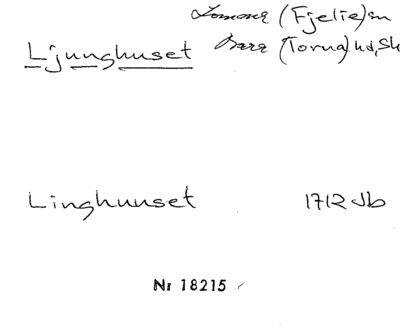 Lomma (Fjelie) sn
Ljunghuset Bara (Torna) hd, Sk
Linghuuset 1712 Jb
Nr 18215